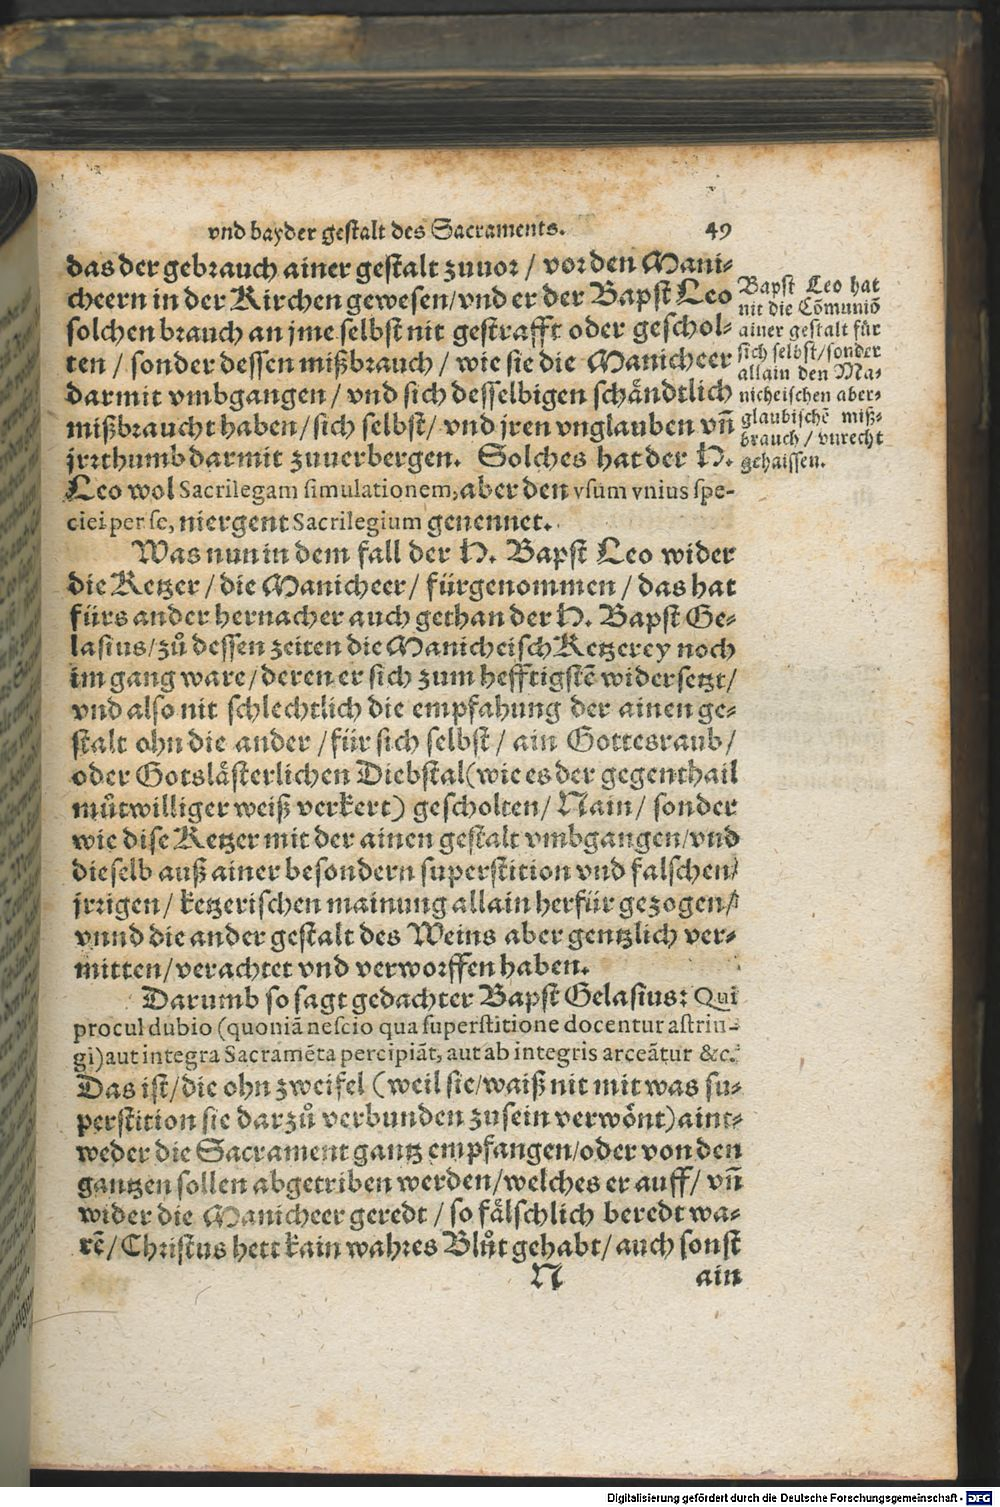 vnd bayder gestalt des Sacraments. 49
das der gebrauch ainer gestalt zuuor / vor den Mani-
cheern in der Kirchen gewesen/vnd er der Bapst Leo
solchen brauch an jme selbst nit gestrafft oder geschol-
ten / sonder dessen mißbrauch / wie sie die Manicheer
darmit vmbgangen / vnd sich desselbigen schändtlich
mißbraucht haben/sich selbst/ vnd jren vnglauben vñ
jrrthumb darmit zuuerbergen. Solches hat der H.
Leo wol Sacrilegam simulationem, aber den vsum vnius spe-
ciei per se, niergent Sacrilegium genennet.
Bapst Leo hat
nit die Cõmuniõ
ainer gestalt für
sich selbst/sonder
allain den Ma-
nicheischen aber-
glaubischẽ miß-
brauch / vnrecht
gehaissen.
Was nun in dem fall der H. Bapst Leo wider
die Ketzer / die Manicheer / fürgenommen / das hat
fürs ander hernacher auch gethan der H. Bapst Ge-
lasius/zů dessen zeiten die Manicheisch Ketzerey noch
im gang ware/deren er sich zum hefftigstẽ widersetzt/
vnd also nit schlechtlich die empfahung der ainen ge-
stalt ohn die ander / für sich selbst / ain Gottesraub/
oder Gotslästerlichen Diebstal(wie es der gegenthail
můtwilliger weiß verkert) gescholten/ Nain/ sonder
wie dise Ketzer mit der ainen gestalt vmbgangen/vnd
dieselb auß ainer besondern superstition vnd falschen/
jrrigen / ketzerischen mainung allain herfür gezogen/
vnnd die ander gestalt des Weins aber gentzlich ver-
mitten/verachtet vnd verworffen haben.
Darumb so sagt gedachter Bapst Gelasius: Qui
procul dubio (quoniã nescio qua superstitione docentur astrin-
gi)aut integra Sacramẽta percipiãt, aut ab integris arceãtur &c.
Das ist/die ohn zweifel (weil sie/waiß nit mit was su-
perstition sie darzů verbunden zusein verwönt)aint-
weder die Sacrament gantz empfangen/oder von den
gantzen sollen abgetriben werden/welches er auff/ vñ
wider die Manicheer geredt / so fälschlich beredt wa-
rẽ/Christus hett kain wahres Blůt gehabt/auch sonst
N ain
Digitalisierung gefördert durch die Deutsche Forschungsgemeinschaft - DFG